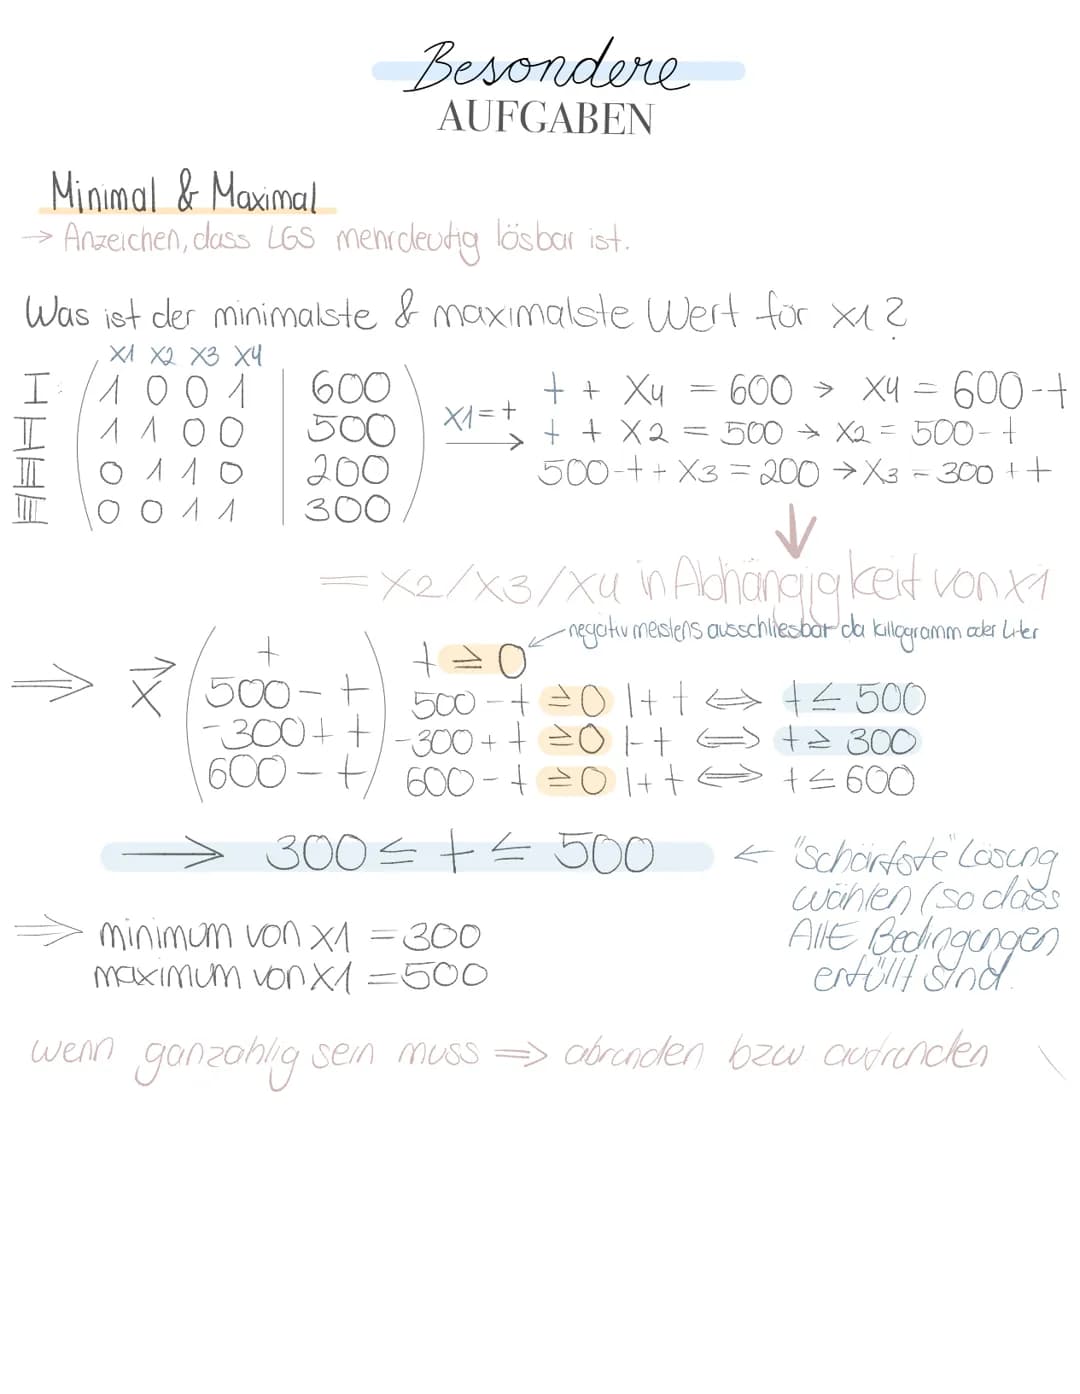 Besondere
AUFGABEN
Minimal & Maximal
→ Anzeichen, dass LGS mehrdeutig lösbar ist.
Was ist der minimalste & maximalste Wert für x1?
x1 x2 x3 x4
I: 1 0 0 1 | 600
II 1 1 0 0 | 500
III 0 1 1 0 | 200
IIII 0 0 1 1 | 300
x1=t
t + x4 = 600 → x4 = 600-t
t + x2 = 500 → x2 = 500-t
500-t + x3 = 200 → x3 = 300 + t
= x2/x3/x4 in Abhängigkeit von x1
negativ meistens ausschliesbar da killogramm oder Liter
⇒ x⃗
t
500 - t
-300 + t
600 - t
t ≥ 0
500 - t ≥ 0 | + t ⇔ t ≤ 500
-300 + t ≥ 0 | - t ⇔ t ≥ 300
600 - t ≥ 0 | + t ⇔ t ≤ 600
→ 300 ≤ t ≤ 500
← "schärfste" Lösung
wählen (so dass
AllE Bedingungen
erfüllt sind.
⇒ minimum von x1 = 300
maximum von x1 = 500
wenn ganzahlig sein muss ⇒ abrunden bzw aufrunden